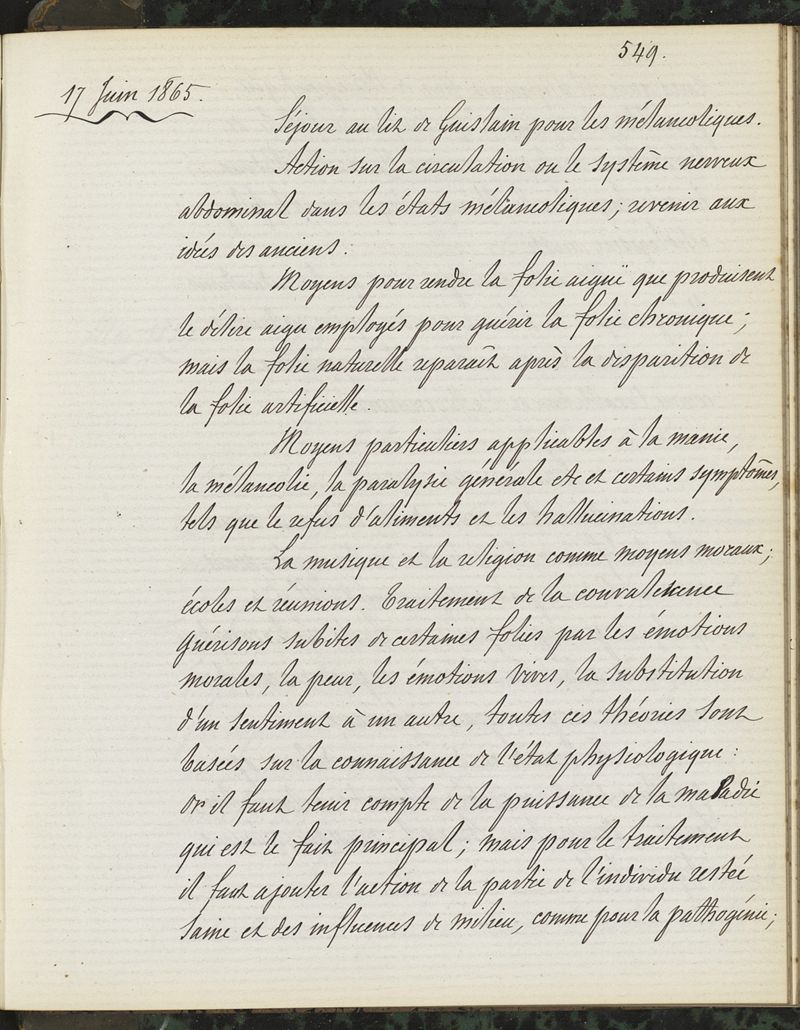 549.
17 Juin 1865.
Séjour au lit de Guislain pour les mélancoliques.
Action sur la circulation ou le système nerveux
abdominal dans les états mélancoliques; revenir aux
idées des anciens.
Moyens pour rendre la folie aiguë que produisent
le délire aigu employés pour guérir la folie chronique;
mais la folie naturelle reparaît après la disparition de
la folie artificielle.
Moyens particuliers applicables à la manie,
la mélancolie, la paralysie générale etc et certains symptômes,
tels que le refus d'aliments et les hallucinations.
La musique et la religion comme moyens moraux;
écoles et réunions. Traitement de la convalescence
Guérisons subites de certaines folies par les émotions
morales, la peur, les émotions vives, la substitution
d'un sentiment à un autre, toutes ces théories sont
basées sur la connaissance de l'état physiologique:
or il faut tenir compte de la puissance de la maladie
qui est le fait principal; mais pour le traitement
il faut ajouter l'action de la partie de l'individu restée
saine et des influences de milieu, comme pour la pathogénie;